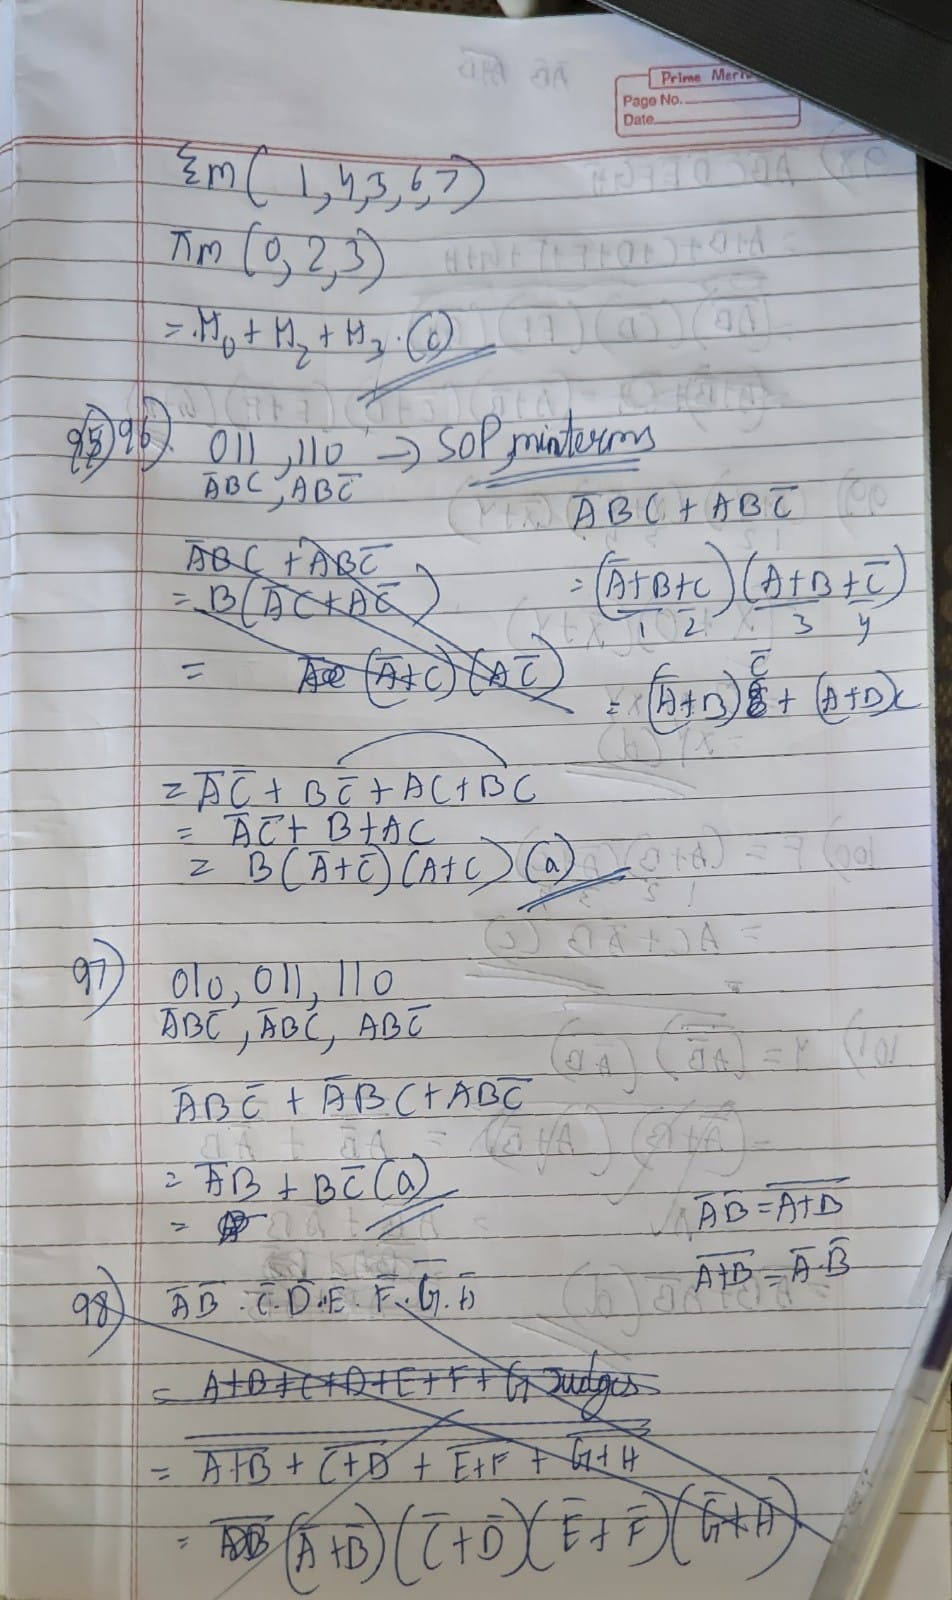 Prime Meri
Page No.
Date
Σm( 1,4,5,6,7)
πm (0, 2,3)
= M₀ + M₂ + M₃ . (c)
95) 96) 011 , 110 → SOP, minterms
A̅BC , ABC̅
A̅BC + ABC̅
A̅BC + ABC̅
= B(A̅C+AC̅)
= (A̅+B+C)(A+B+C̅)
1 2 3 4
= (A̅+C)(AC̅)
= (A̅+B)C̅ + (A+B)C
= A̅C̅ + BC̅ + AC + BC
= A̅C̅ + B + AC
= B(A̅+C̅)(A+C) (a)
97) 010, 011, 110
A̅BC̅ , A̅BC, ABC̅
A̅BC̅ + A̅BC + ABC̅
= A̅B + BC̅ (a)
=
A̅B̅ = A̅+̅B̅
A̅+̅B̅ = A̅.B̅
98) A̅B̅ . C̅.D̅.E̅ . F̅.G̅.H̅
= A+B+C+D+E+F+G Judges
= A̅+̅B̅ + C̅+̅D̅ + E̅+̅F̅ + G̅+̅H̅
= (A̅+B̅)(C̅+D̅)(E̅+F̅)(G̅+H̅)